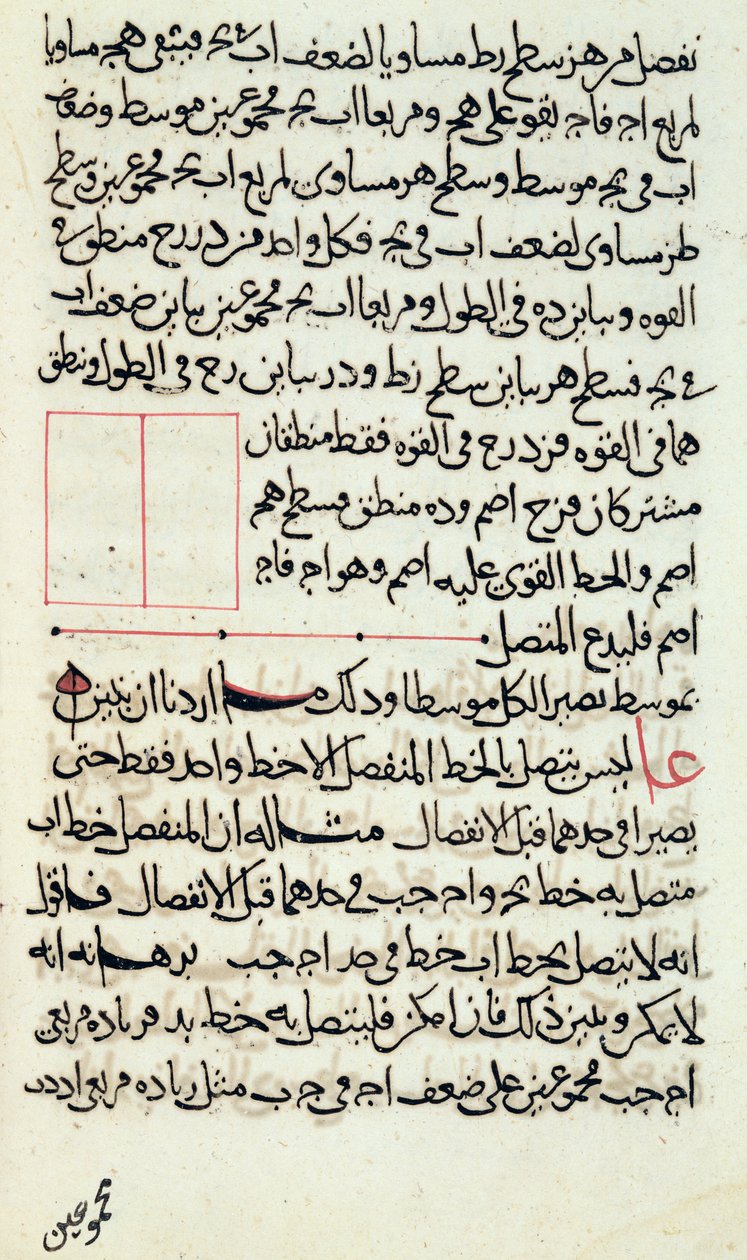 نفصل من هز سطح رط مساويا لضعف اب في بج فيبقى هج مساويا
لمربع اج فاج يقوى على هم ومربعا اب بج مجموعين موسط وضعف
اب في بج موسط وسطح هر مساوى لمربع اب بج مجموعين وسطح
طز مساوى لضعف اب في بج فكل واحد من در رح منطق في
القوه ويباين ده في الطول ومربعا اب بج مجموعين يباين ضعف اب
في بج فسطح هر يباين سطح زط ودر يباين رح في الطول ومنطق
هما في القوه فزد رح في القوه فقط منطقان
مشتركان فزح اصم وده منطق فسطح هم
اصم والخط القوي عليه اصم وهو اج فاج
اصم فليدع المتصل
بموسط يصير الكل موسطا وذلك ما اردنا ان نبين
عا ليس يتصل بالخط المنفصل الا خط واحد فقط حتى
يصيرا في حدهما قبل الانفصال مثاله ان المنفصل خط اب
متصل به خط بج واج جب في حدهما قبل الانفصال فاقول
انه لا يتصل بخط اب خط في حد اج جب برهانه انه
لا يمكن ويبين ذلك فان امكن فليتصل به خط بد فزياده مربعي
اج جب مجموعين على ضعف اج في جب مثل زياده مربعي اد دب
مجموعين